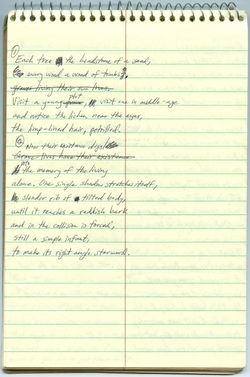 ①
Each tree the headstone of a seed,
every wood a wood of tombs,
graves living their own lives.
Visit a young plot, visit one in middle-age
and notice the lichen near the eyes,
the limp-lined hair, petrified.
② Now their existence
the memory of the living
alone. One single shadow stretches itself,
slender rib of tilted body,
until it reaches a reddish bark
and in the collision is forced,
still a simple infant,
to make its right angle starward.